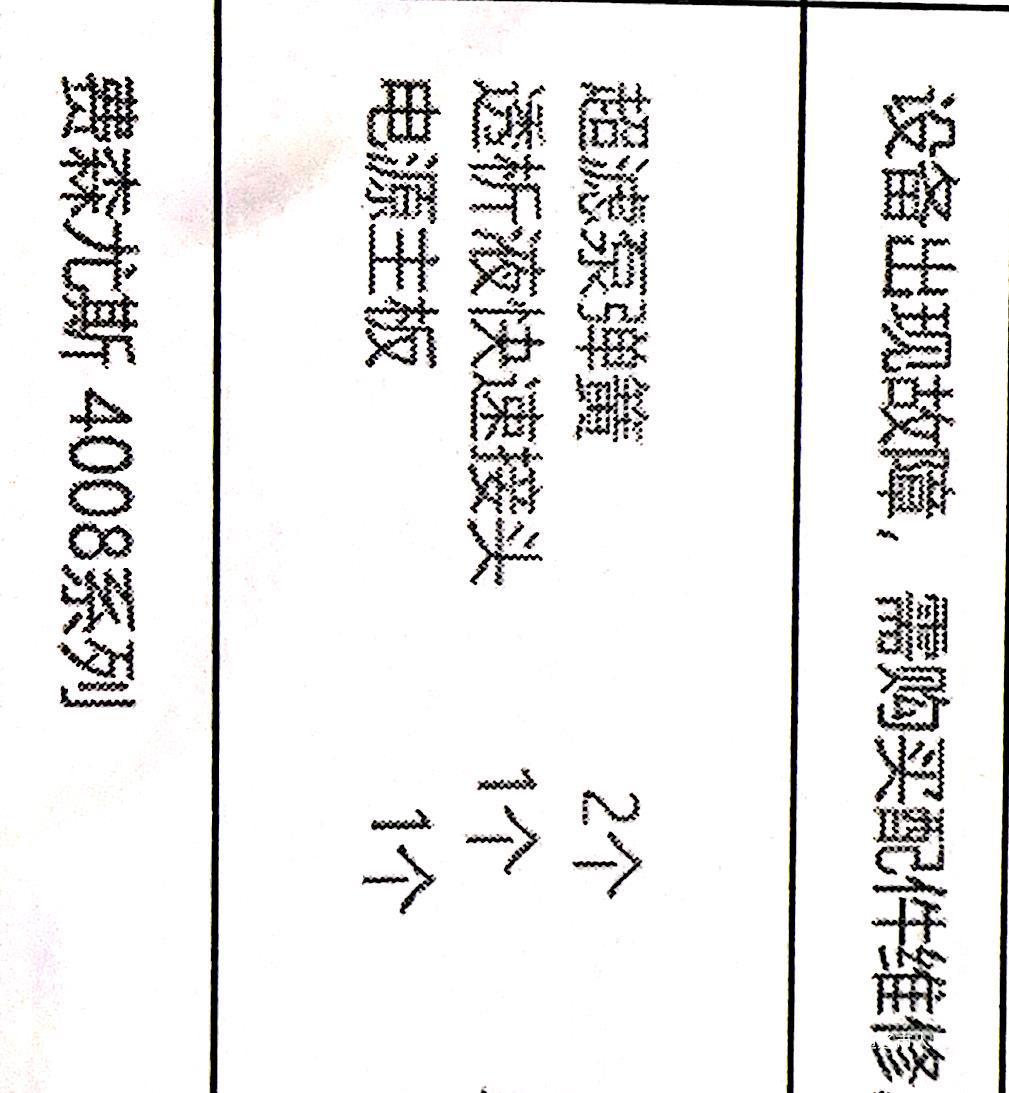 设备出现故障，需购买配件维修
超滤泵弹簧 2个
透析液快速接头 1个
电源主板 1个
费森尤斯 4008系列